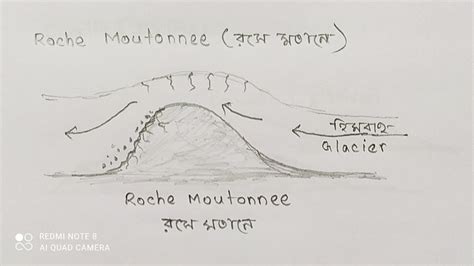 Roche Moutonnee (রসে মতানে)
হিমবাহ
Glacier
Roche Moutonnee
রসে মতানে
REDMI NOTE 8
AI QUAD CAMERA